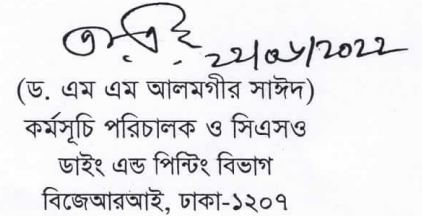 (ড. এম এম আলমগীর সাঈদ)
কর্মসূচি পরিচালক ও সিএসও
ডাইং এন্ড পিন্টিং বিভাগ
বিজেআরআই, ঢাকা-১২০৭